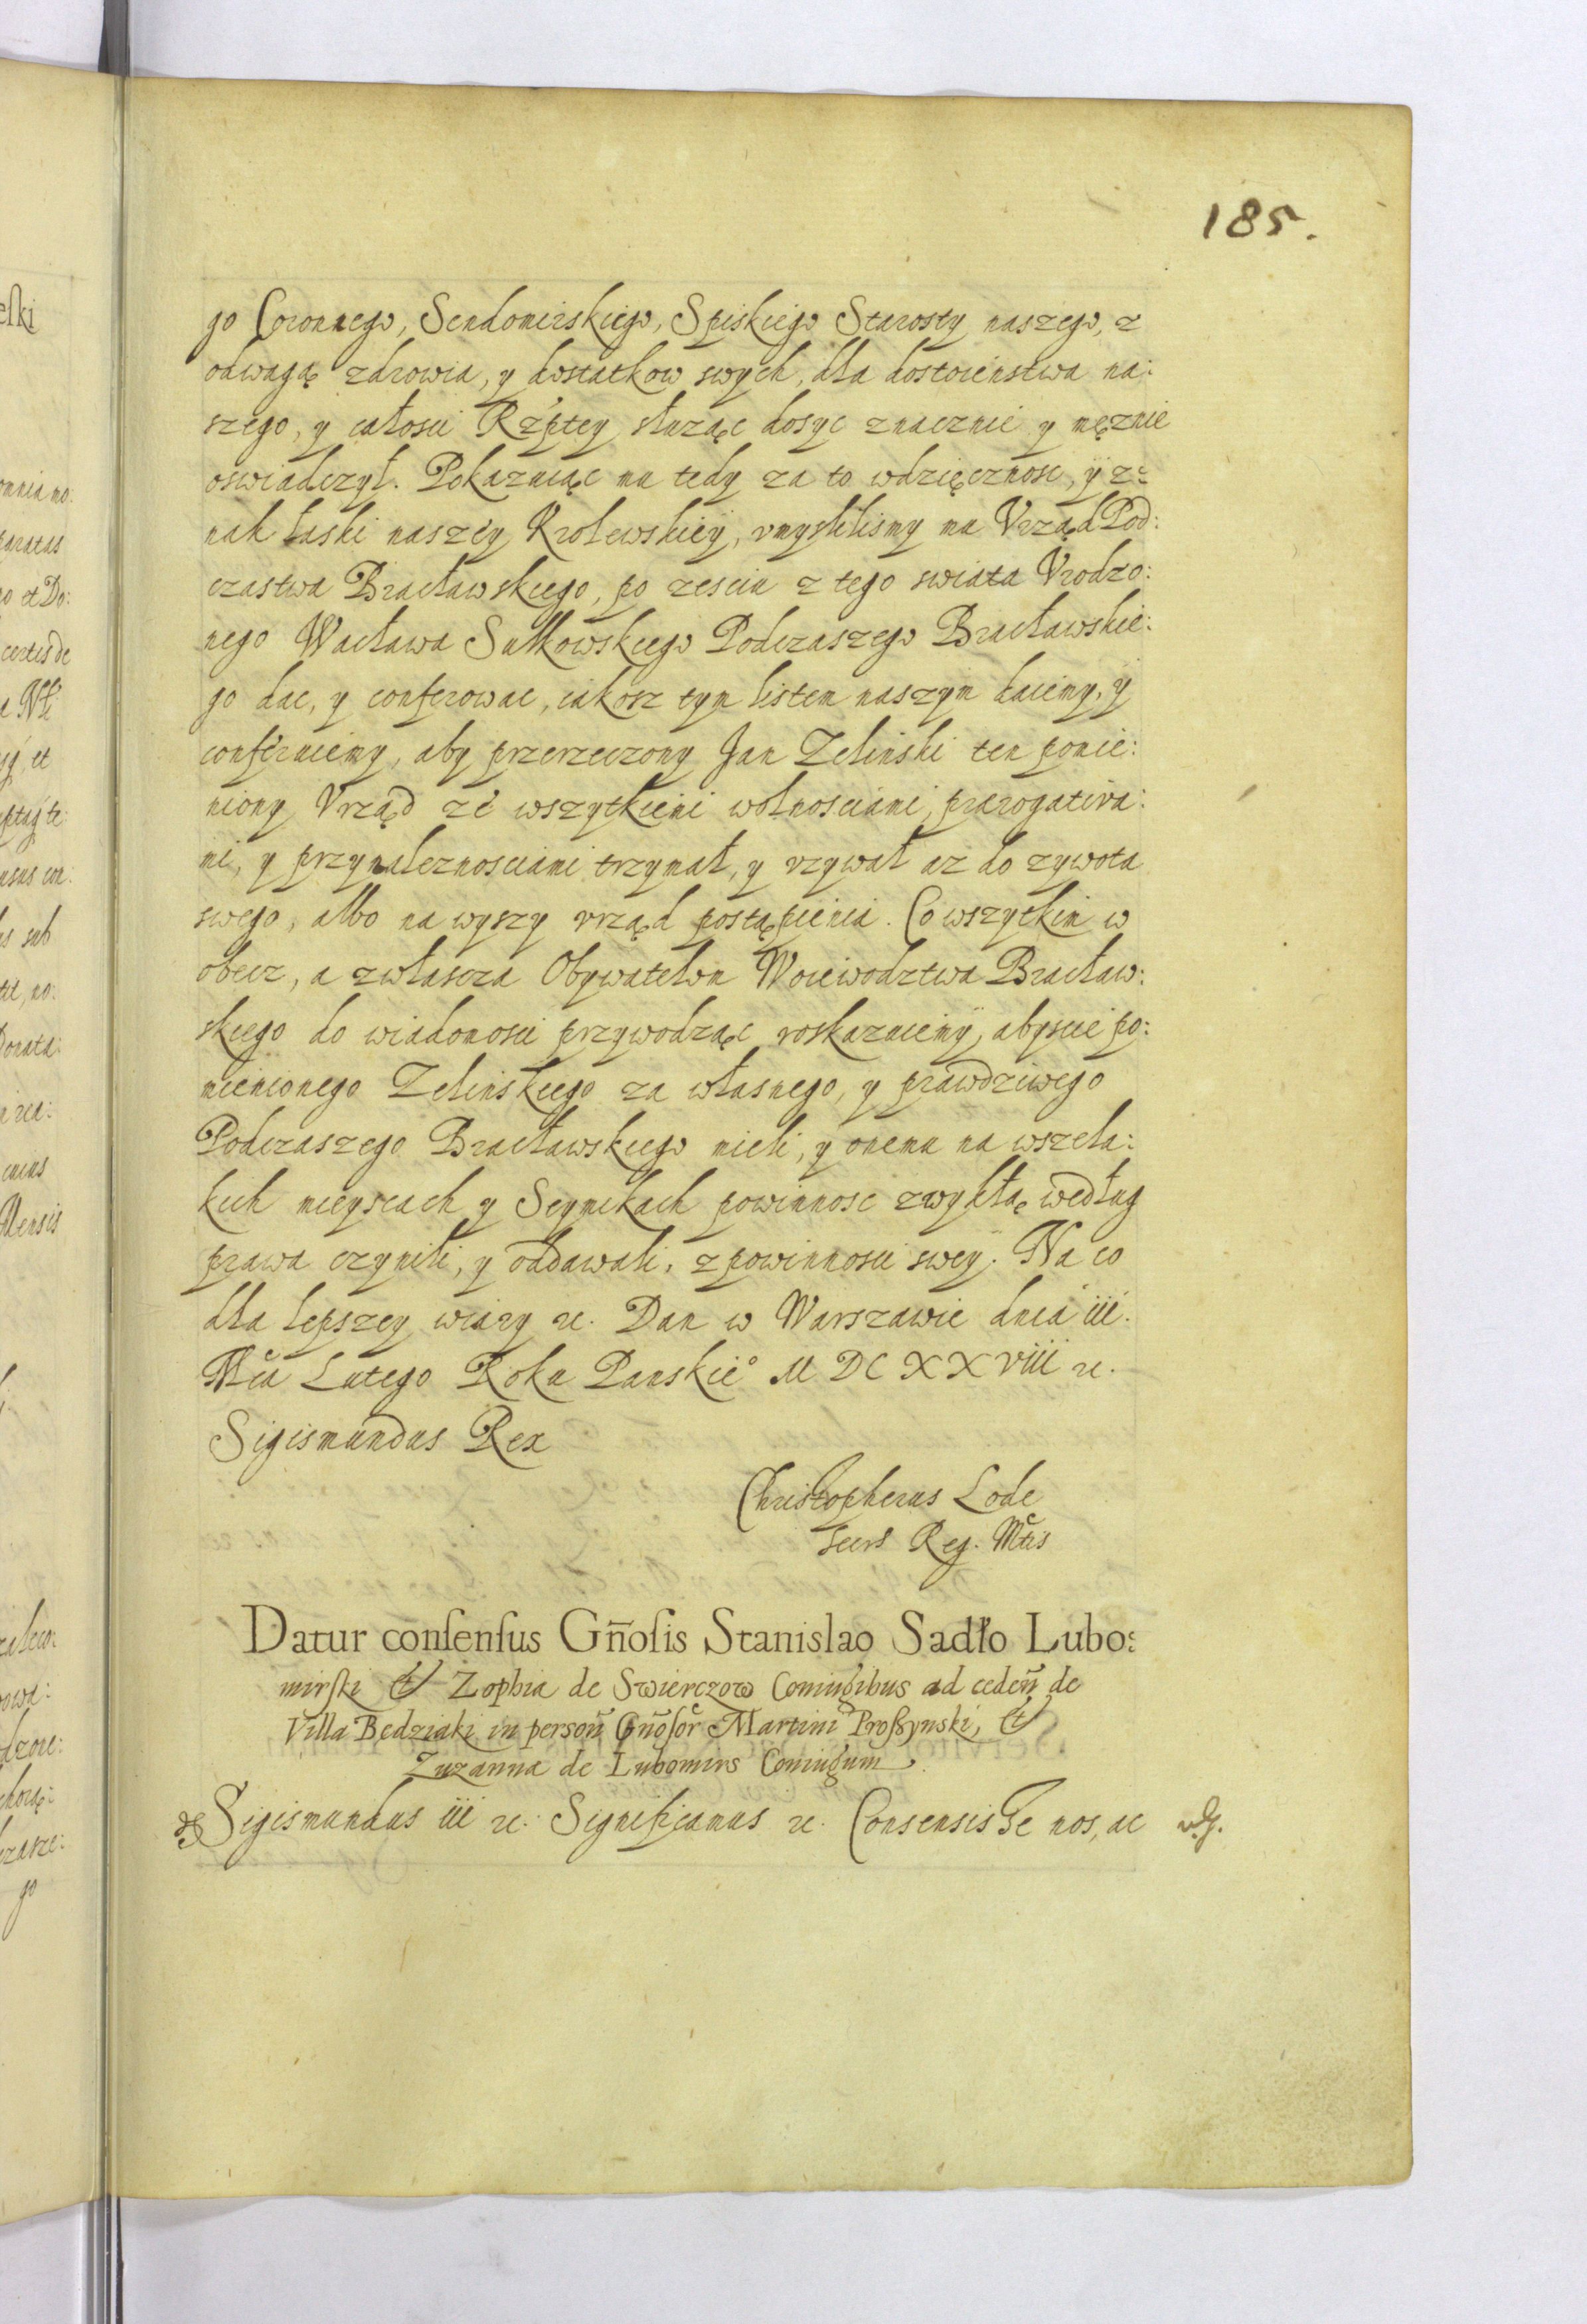 185.
go Coronnego, Sendomirskiego, Spiskiego Starosty naszego, z
odwagą zdrowia, y dostatkow swych, dla dostoieństwa na:
szego, y całosci Rzptey służąc dosyc znacznie y mężnie
oswiadczył. Pokazuiąc mu tedy za to wdzięcznosc, ÿ z:
nak łaski naszey Krolewskiey, vmyslilismy mu Vrząd Pod:
czastwa Bracławskiego, po zesciu z tego swiata Vrodzo:
nego Wacława Sułkowskiego Podczaszego Bracławskie:
go dac, y conferowac, iakosz tym listem naszym daiemy, ÿ
conferuiemy, aby przerzeczony Jan Zelinski ten pomie:
niony Vrząd ze wszytkiemi wolnosciami, prærogativa:
mi, y przynaleznosciami trzymał, y vzywał az do zywota
swego, albo na wyszy vrząd postąpienia. Co wszytkim w
obecz, a zwłascza Obywatelom Woiewodztwa Bracław:
skiego do wiadomosci przywodząc roskazuiemÿ, abyscie po:
mienionego Zelinskiego za własnego, y prawdziwego
Podczaszego Bracławskiego mieli, y onemu na wszela:
kich mieyscach y Seymikach powinnosc zwykłą według
prawa czynili, y oddawali, z powinnosci swey. Na co
dla lepszey wiary etc. Dan w Warszawie dnia iii.
Mca Lutego Roku Panskie° M DC XX viii etc.
Sigismundus Rex
Christopherus Lode
Secrs Reg. Mtis
Datur consensus Gnosis Stanislao Sadło Lubo:
mirski et Zophia de Swierczow Coniugibus ad ceden de
Villa Będziaki in person Gnosor Martini Proszynski, et
Zuzanna de Lubomirs Coniugum.
Sigismundus iii etc. Significamus etc. Consensisse nos, ac